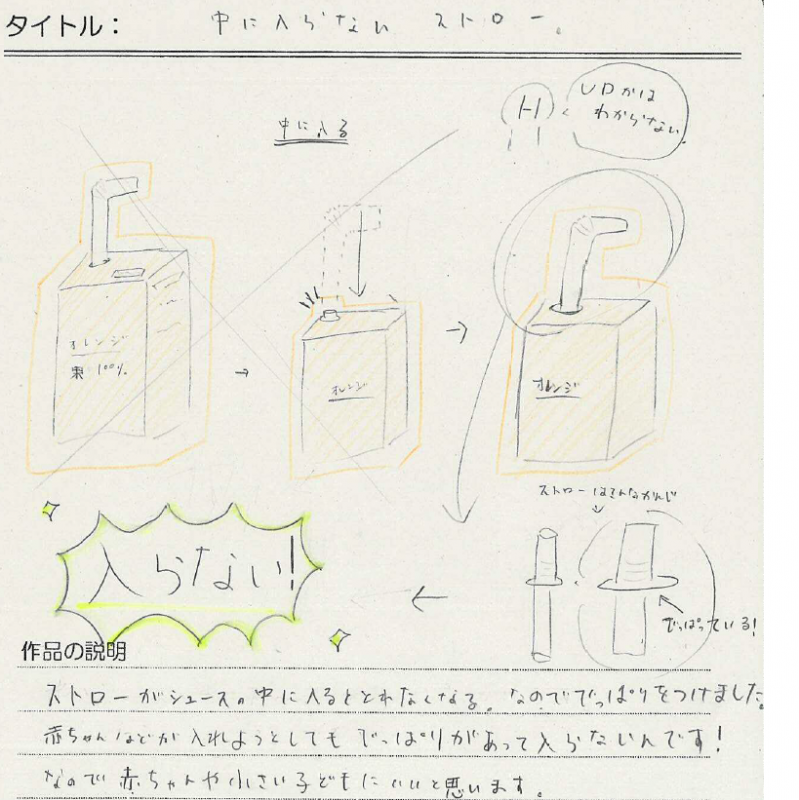 タイトル： 中に入らない ストロー。
UDかは
わからない
中に入る
オレンジ
100%
オレンジ
オレンジ
ストローはこんなかんじ
入らない!
でっぱっている!
作品の説明
ストローがジュースの中に入るととれなくなる。なのででっぱりをつけました。
赤ちゃんなどが入れようとしてもでっぱりがあって入らないんです!
なので赤ちゃんや小さい子どもにいいと思います。